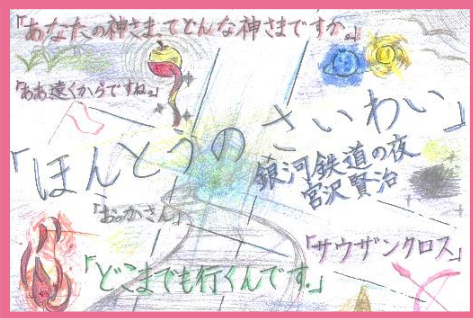 「あなたの神さまってどんな神さまですか。」
「ああ遠くからですね。」
「ほんとうのさいわい」
銀河鉄道の夜
宮沢賢治
「おっかさん」
「サウザンクロス」
「どこまでも行くんです。」